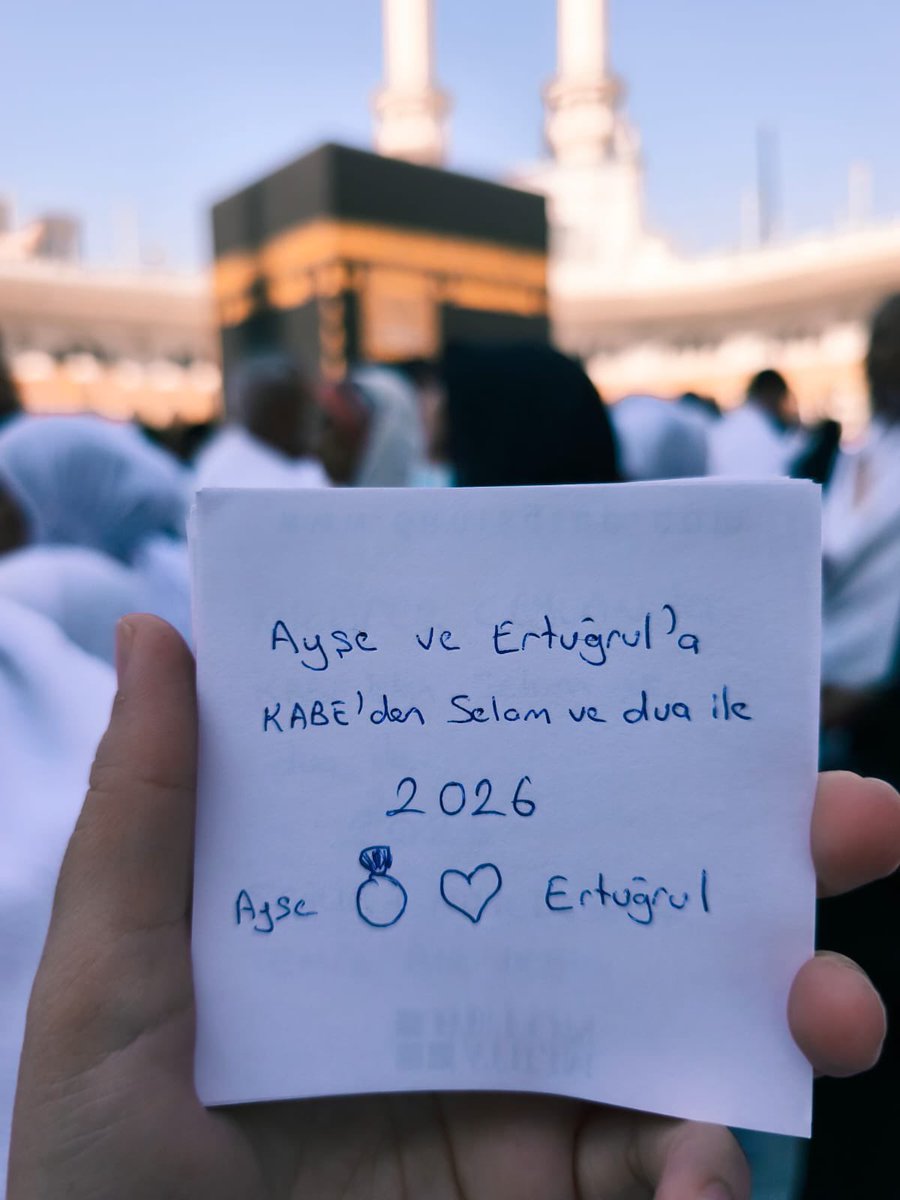 Ayşe ve Ertuğrul'a
KABE'den Selam ve dua ile
2026
Ayşe Ertuğrul